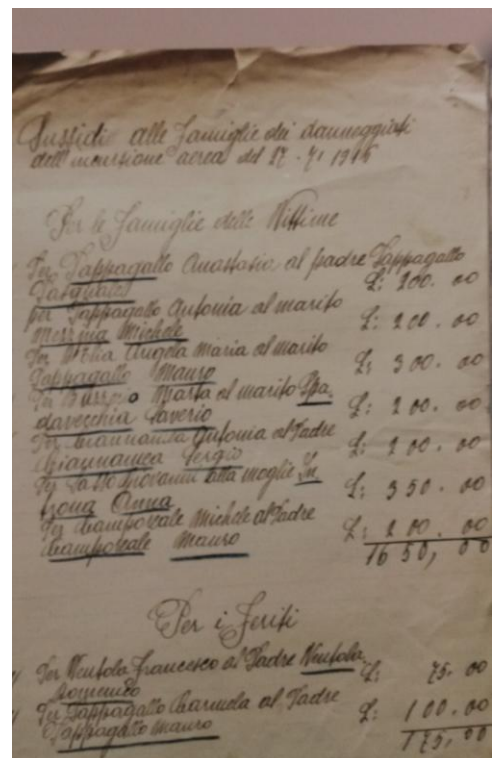 Sussidi alle famiglie dei danneggiati
dell'incursione aerea del 27-7-1916
Per le famiglie delle Vittime
Per Pappagallo Anastasia al padre Pappagallo
Pasquale L: 200.00
per Pappagallo Antonia al marito
Messina Michele L: 200.00
Per Angela Maria al marito
Pappagallo Mauro L: 300.00
Per Marta al marito Spa-
davecchia Saverio L: 200.00
Per Giannanca Antonia al Padre
Giannanca Sergio L: 200.00
Per Giovanni alla moglie
Anna L: 350.00
Per Ciamporcale Michele al Padre
Ciamporcale Mauro L: 200.00
1650,00
Per i feriti
Per Ventola Francesco al Padre Ventola
Domenico L: 75.00
Per Pappagallo Carmela al Padre
Pappagallo Mauro L: 100.00
175,00